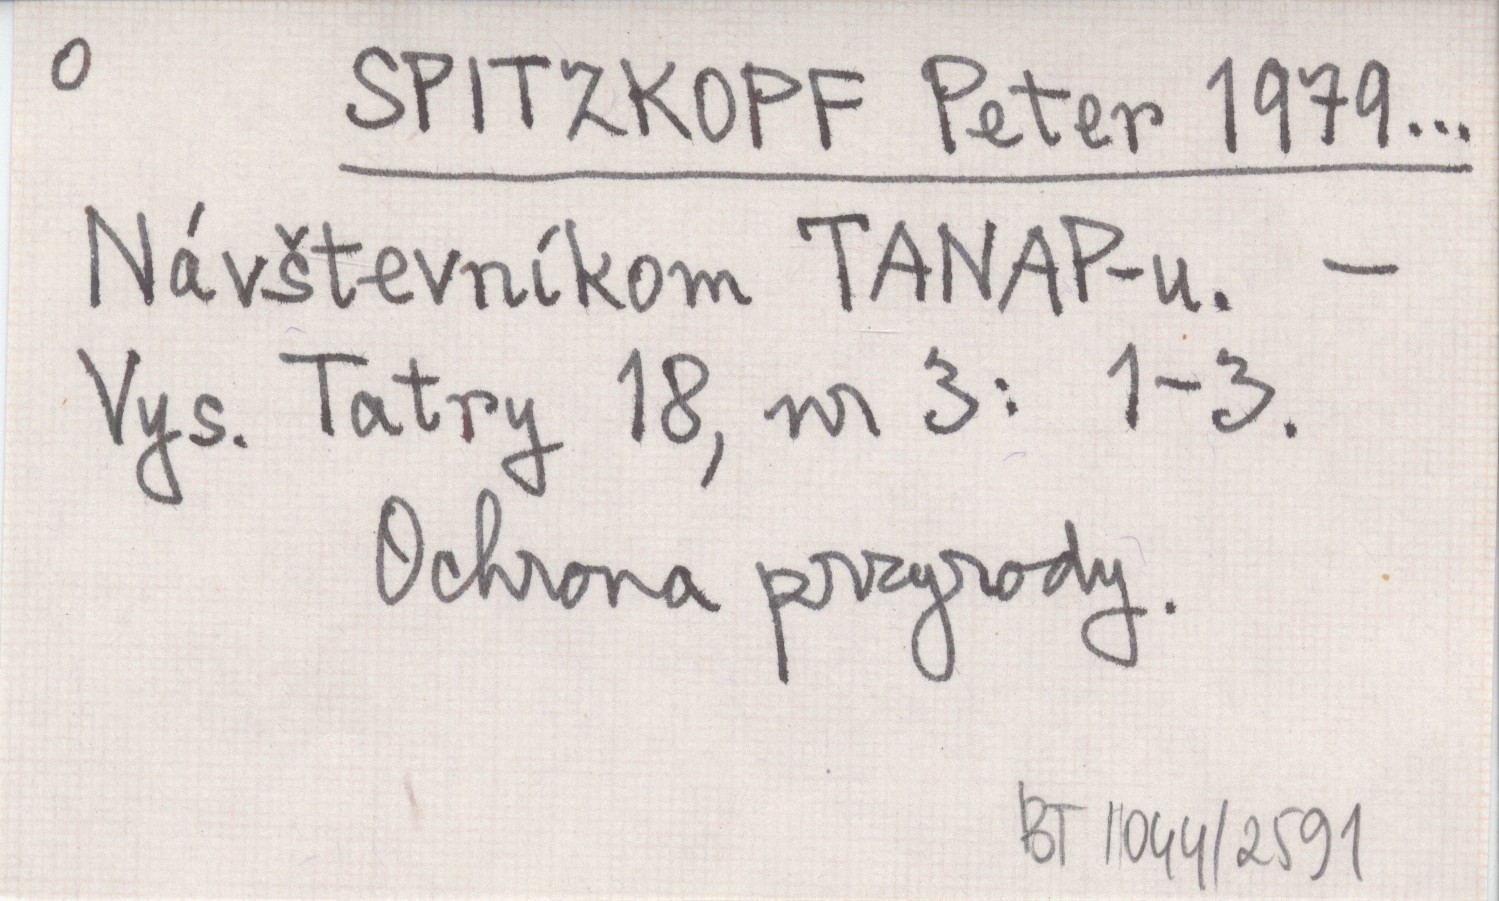 O SPITZKOPF Peter 1979...
Návštevníkom TANAP-u. –
Vys. Tatry 18, nr 3: 1-3.
Ochrona przyrody.
BT 11044/2591